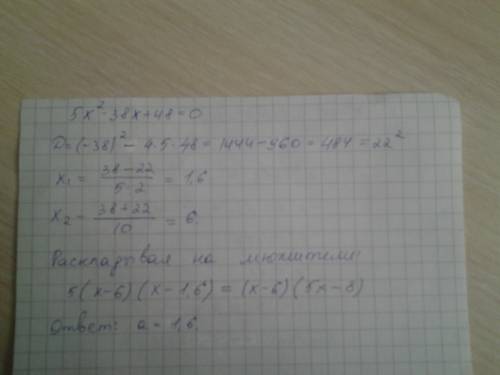 5x² - 38x + 48 = 0
D = (-38)² - 4·5·48 = 1444 - 960 = 484 = 22²
x₁ = (38-22)/(5·2) = 1,6
x₂ = (38+22)/10 = 6
Раскладывая на множители:
5(x-6)(x-1,6) = (x-6)(5x-8)
Ответ: a = 1,6.